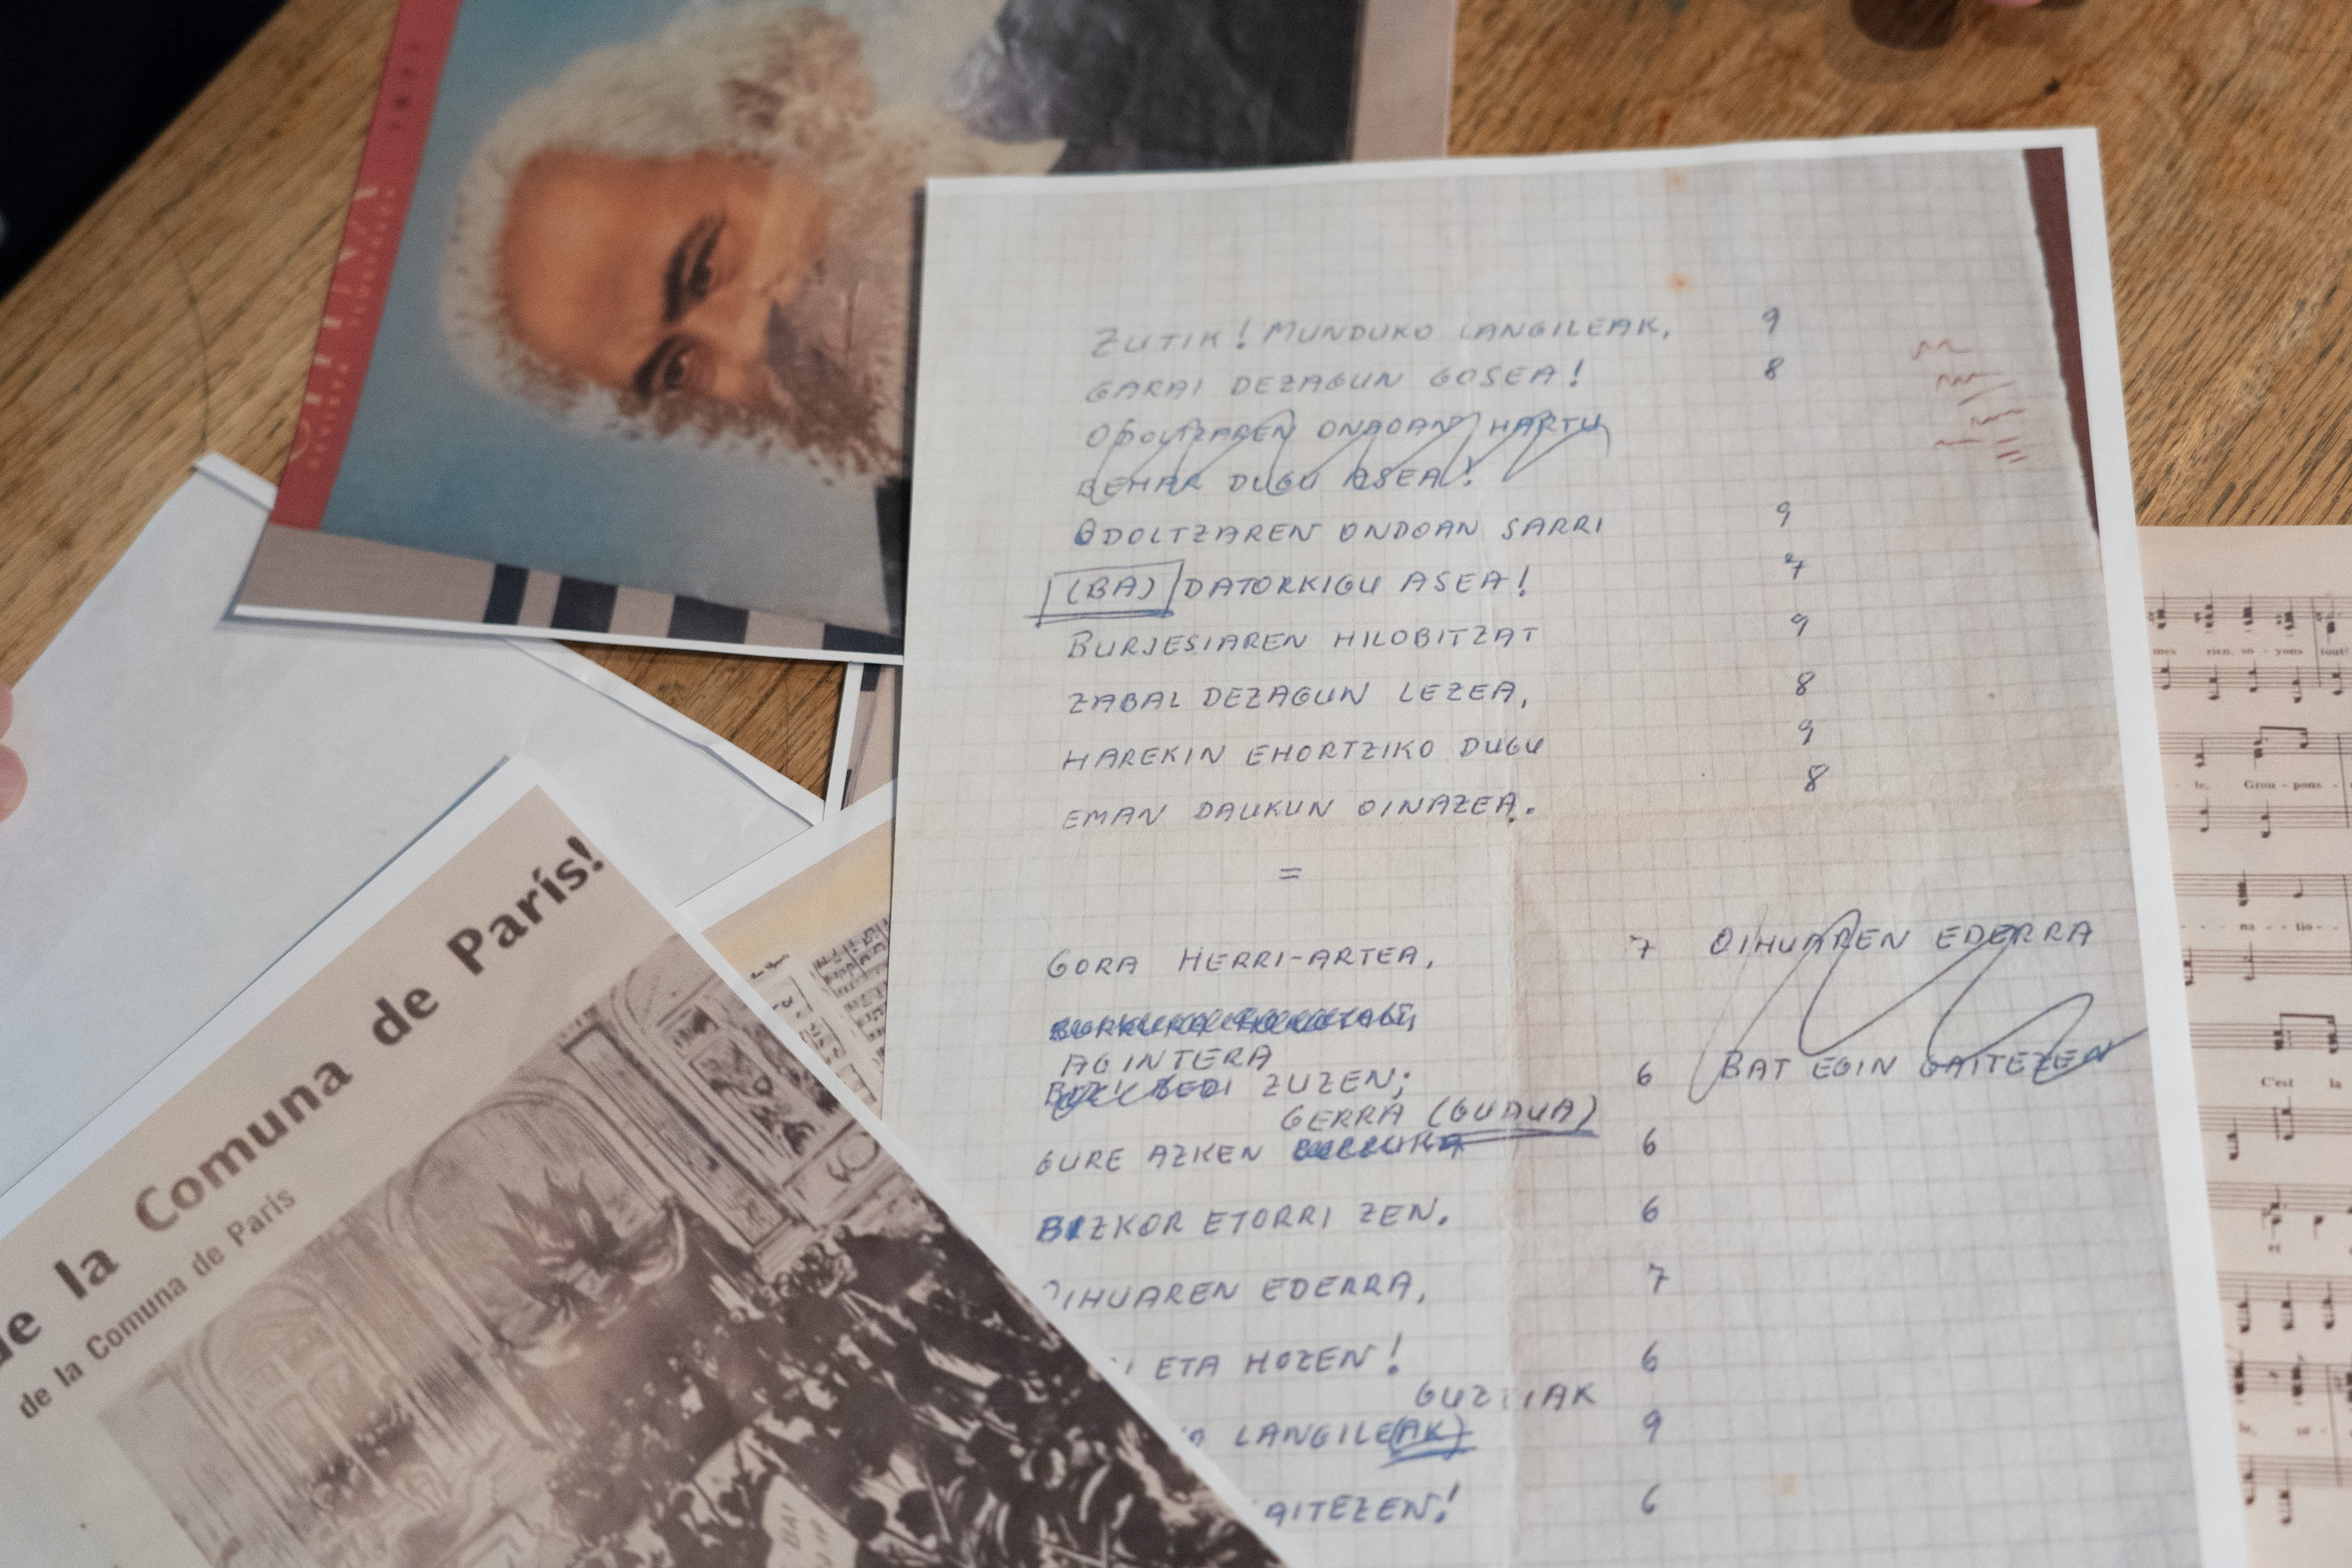 ZUTIK! MUNDUKO LANGILEAK, 9
GARAI DEZAGUN GOSEA! 8
ODOLTZAREN ONDOAN HARTU
BEHAR DUGU ASEA!
ODOLTZAREN ONDOAN SARRI 9
(BA) DATORKIGU ASEA! 7
BURJESIAREN HILOBITZAT 9
ZABAL DEZAGUN LEZEA, 8
HAREKIN EHORTZIKO DUGU 9
EMAN DAUKUN OINAZEA. 8
=
GORA HERRI-ARTEA, 7 OIHUAREN EDERRA
AGINTERA
ZUZEN; 6 BAT EGIN GAITEZEN
GERRA (GUDUA)
GURE AZKEN 6
BIZKOR ETORRI ZEN. 6
OIHUAREN EDERRA, 7
ETA HOZEN! 6
GUZTIAK
LANGILE(AK) 9
GAITEZEN! 6
de la Comuna de París!
de la Comuna de París
mes rien, so - yons tout!
Grou - pons -
na - - tio -
C'est la
et